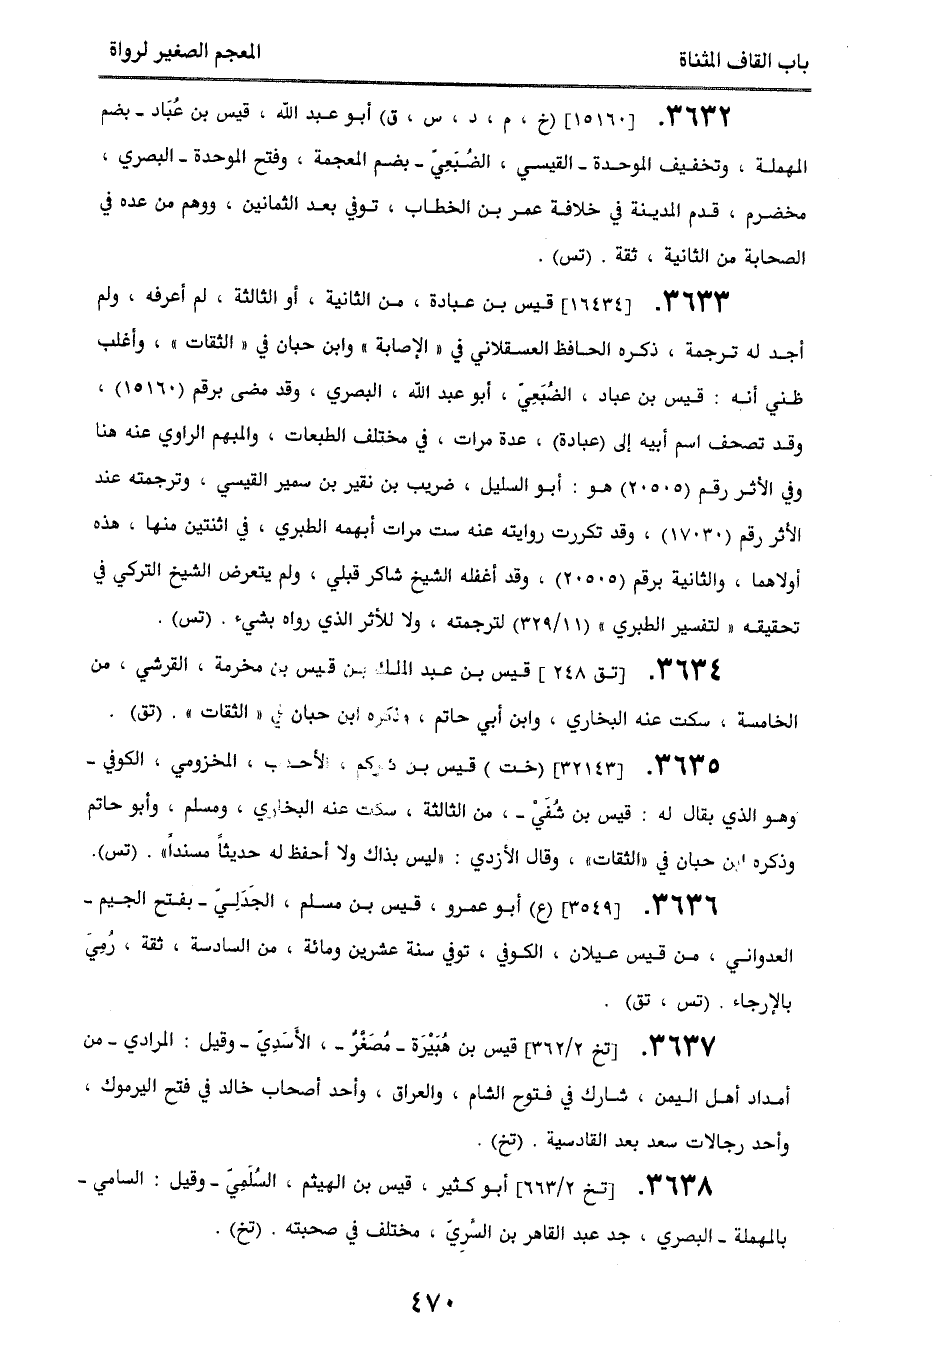 باب القاف المثناة
المعجم الصغير لرواة
٣٦٣٢. [١٥١٦٠] (خ ، م ، د ، س ، ق) أبو عبد الله ، قيس بن عُبَاد ـ بضم
المهملة ، وتخفيف الموحدة ـ القيسي ، الضُبَعِيّ ـ بضم المعجمة ، وفتح الموحدة ـ البصري ،
مخضرم ، قدم المدينة في خلافة عمر بن الخطاب ، توفي بعد الثمانين ، ووهم من عده في
الصحابة من الثانية ، ثقة . (تس) .
٣٦٣٣. [١٦٤٣٤] قيس بن عبادة ، من الثانية ، أو الثالثة ، لم أعرفه ، ولم
أجد له ترجمة ، ذكره الحافظ العسقلاني في « الإصابة » وابن حبان في « الثقات » ، وأغلب
ظني أنه : قيس بن عباد ، الضُبَعِيّ ، أبو عبد الله ، البصري ، وقد مضى برقم (١٥١٦٠) ،
وقد تصحف اسم أبيه إلى (عبادة) ، عدة مرات ، في مختلف الطبعات ، والمبهم الراوي عنه هنا
وفي الأثر رقم (٢٠٥٠٥) هو : أبو السليل ، ضريب بن نقير بن سمير القيسي ، وترجمته عند
الأثر رقم (١٧٠٣٠) ، وقد تكررت روايته عنه ست مرات أبهمه الطبري ، في اثنتين منها ، هذه
أولاهما ، والثانية برقم (٢٠٥٠٥) ، وقد أغفله الشيخ شاكر قبلي ، ولم يتعرض الشيخ التركي في
تحقيقه « لتفسير الطبري » (٣٢٩/١١) لترجمته ، ولا للأثر الذي رواه بشيء . (تس) .
٣٦٣٤. [تق ٢٤٨ ] قيس بن عبد الملك بن قيس بن مخرمة ، القرشي ، من
الخامسة ، سكت عنه البخاري ، وابن أبي حاتم ، وذكره ابن حبان في « الثقات » . (تق) .
٣٦٣٥. [٣٢١٤٣] (خت ) قيس بن ، الأحدب ، المخزومي ، الكوفي ـ
وهو الذي يقال له : قيس بن شُفَيّ ـ ، من الثالثة ، سكت عنه البخاري ، ومسلم ، وأبو حاتم
وذكره ابن حبان في «الثقات» ، وقال الأزدي : «ليس بذاك ولا أحفظ له حديثاً مسنداً» . (تس).
٣٦٣٦. [٣٥٤٩] (ع) أبو عمرو ، قيس بن مسلم ، الجَدَلِيّ ـ بفتح الجيم ـ
العدواني ، من قيس عيلان ، الكوفي ، توفي سنة عشرين ومائة ، من السادسة ، ثقة ، رُمِيَ
بالإرجاء . (تس ، تق) .
٣٦٣٧. [تخ ٣٦٢/٢] قيس بن هُبَيْرَة ـ مُصَغَّرٌ ـ ، الأَسَدِيّ ـ وقيل : المرادي ـ من
أمداد أهل اليمن ، شارك في فتوح الشام ، والعراق ، وأحد أصحاب خالد في فتح اليرموك ،
وأحد رجالات سعد بعد القادسية . (تخ) .
٣٦٣٨. [تخ ٦٦٣/٢] أبو كثير ، قيس بن الهيثم ، السُلَمِيّ ـ وقيل : السامي ـ
بالمهملة ـ البصري ، جد عبد القاهر بن السَّرِيّ ، مختلف في صحبته . (تخ) .
٤٧٠